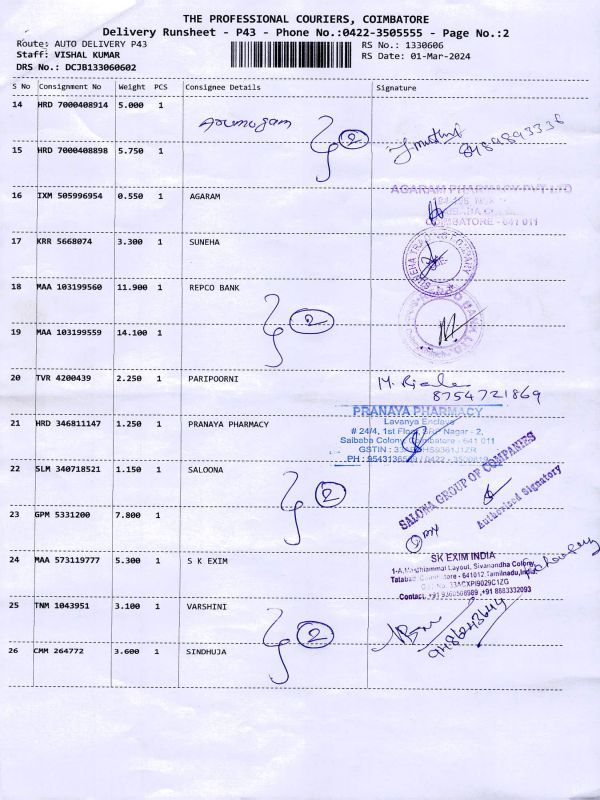 THE PROFESSIONAL COURIERS, COIMBATORE
Delivery Runsheet - P43 - Phone No.:0422-3505555 - Page No.:2
Route: AUTO DELIVERY P43
RS No.: 1330606
Staff: VISHAL KUMAR
RS Date: 01-Mar-2024
DRS No.: DCJB133060602
S No Consignment No Weight PCS Consignee Details Signature
14 HRD 7000408914 5.000 1 Arumugam
2
15 HRD 7000408898 5.750 1
16 IXM 505996954 0.550 1 AGARAM
AGARAM PHARMACY PVT LTD
COIMBATORE - 641 011
17 KRR 5668074 3.300 1 SUNEHA
18 MAA 103199560 11.900 1 REPCO BANK
2
19 MAA 103199559 14.100 1
20 TVR 4200439 2.250 1 PARIPOORNI
8754721869
21 HRD 346811147 1.250 1 PRANAYA PHARMACY
PRANAYA PHARMACY
Lavanya Enclave
# 24/4, 1st Floor, Nagar - 2,
Saibaba Colony, Coimbatore - 641 011
22 SLM 340718521 1.150 1 SALOONA
2
SALONA GROUP OF COMPANIES
Authorised Signatory
23 GPM 5331200 7.800 1
24 MAA 573119777 5.300 1 S K EXIM
SK EXIM INDIA
Layout, Sivanandha Colony,
Coimbatore - 641012. Tamilnadu, India.
Contact. +91 9360508989 ,+91 8883332093
25 TNM 1043951 3.100 1 VARSHINI
2
26 CMM 264772 3.600 1 SINDHUJA